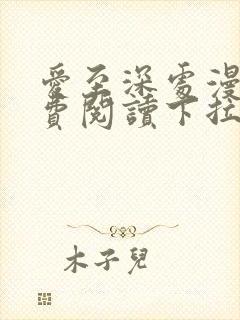 愛至深處漫
費閱讀下拉
木子兒